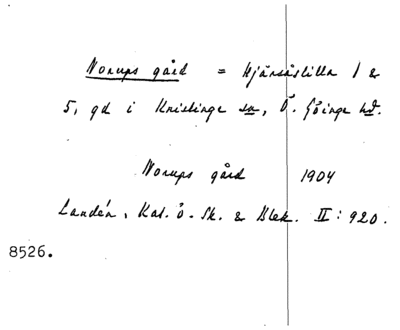 Norups gård = Hjärsåslilla 1 &
5, gd i Knislinge sn, Ö. Göinge hd.
Norups gård 1904
Landén, Kat. ö. Sk. & Blek. II: 920.
8526.